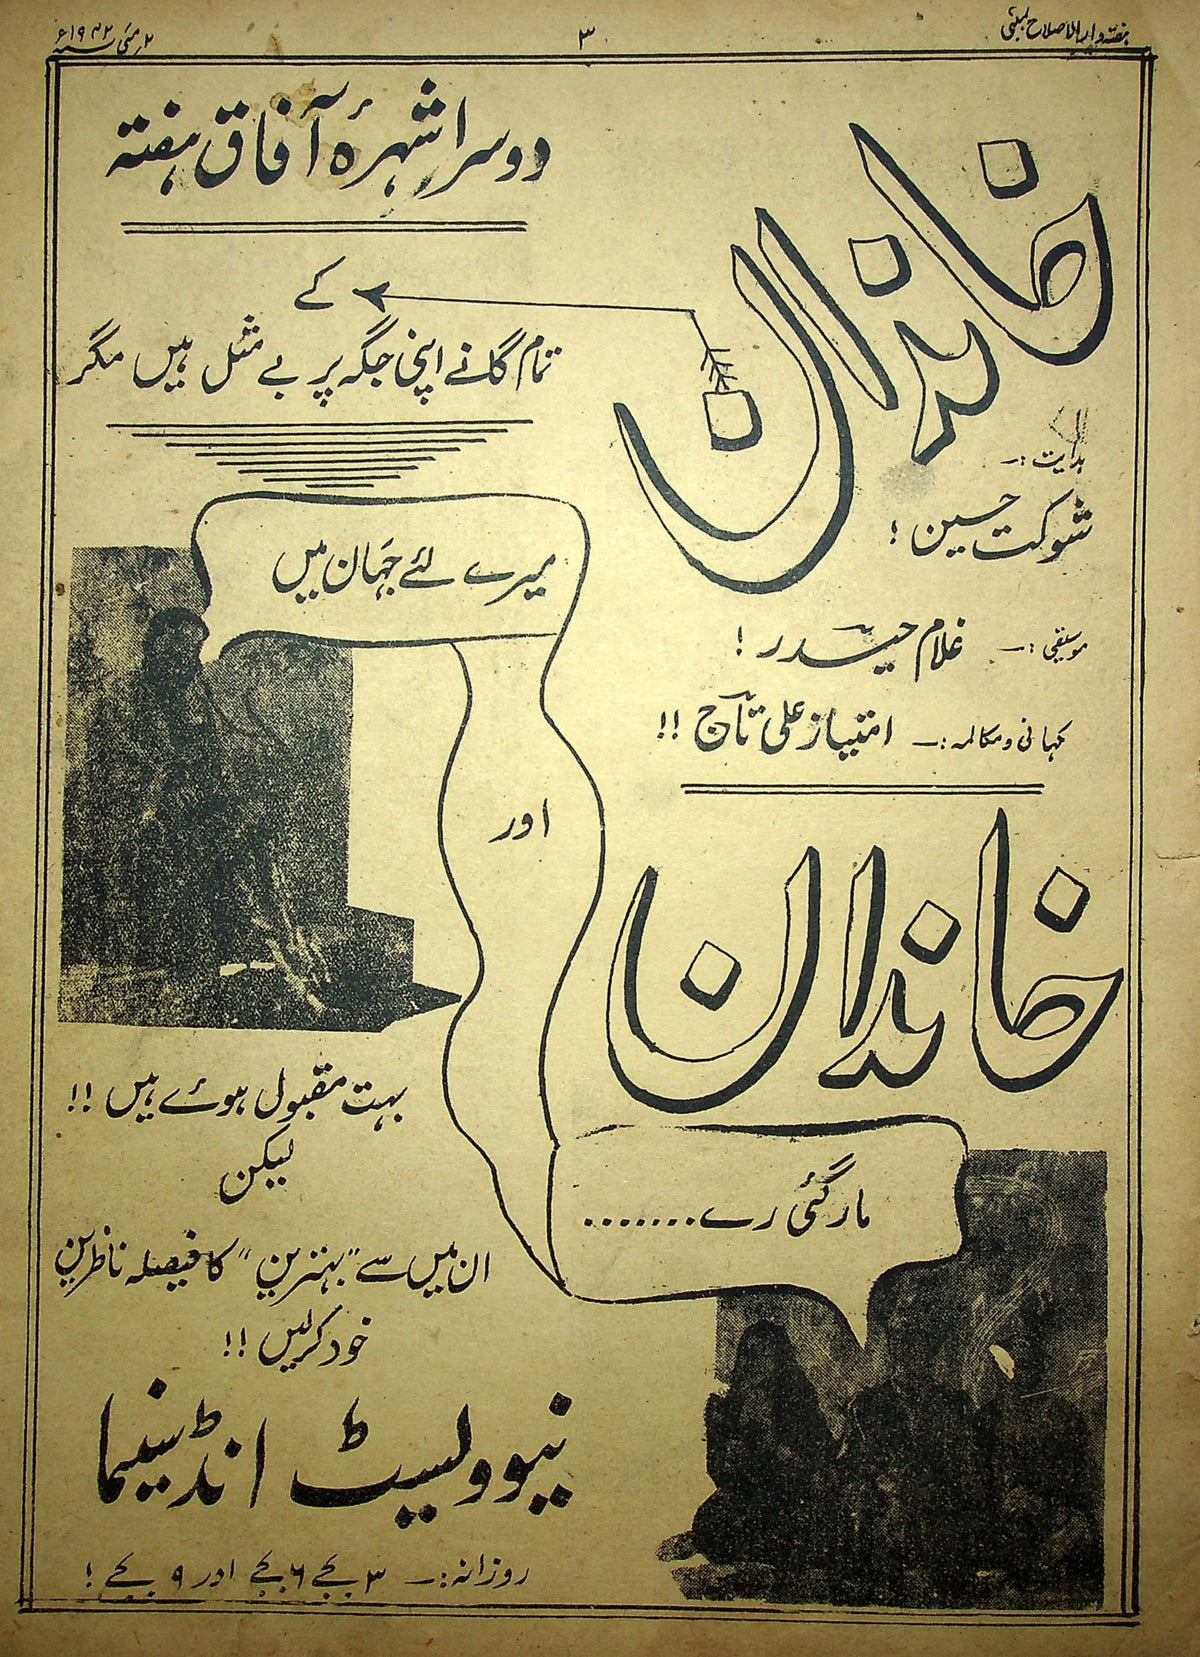 ہفتہ وار الاصلاح بمبئی
۳
۲ مئی سنہ ۱۹۴۲ء
خاندان
دوسرا شہرۂ آفاق ہفتہ
کے
تمام گانے اپنی جگہ پر بے مثل ہیں مگر
ہدایت :۔
شوکت حسین !
موسیقی :۔ غلام حیدر !
کہانی و مکالمہ :۔ امتیاز علی تاج !!
میرے لئے جہان میں
اور
خاندان
مار گئی رے.......
بہت مقبول ہوئے ہیں !!
لیکن
ان میں سے "بہترین" کا فیصلہ ناظرین
خود کرلیں !!
نیو ولیسٹ انڈ سینما
روزانہ :۔ ۳ بجے ۶ بجے اور ۹ بجے !